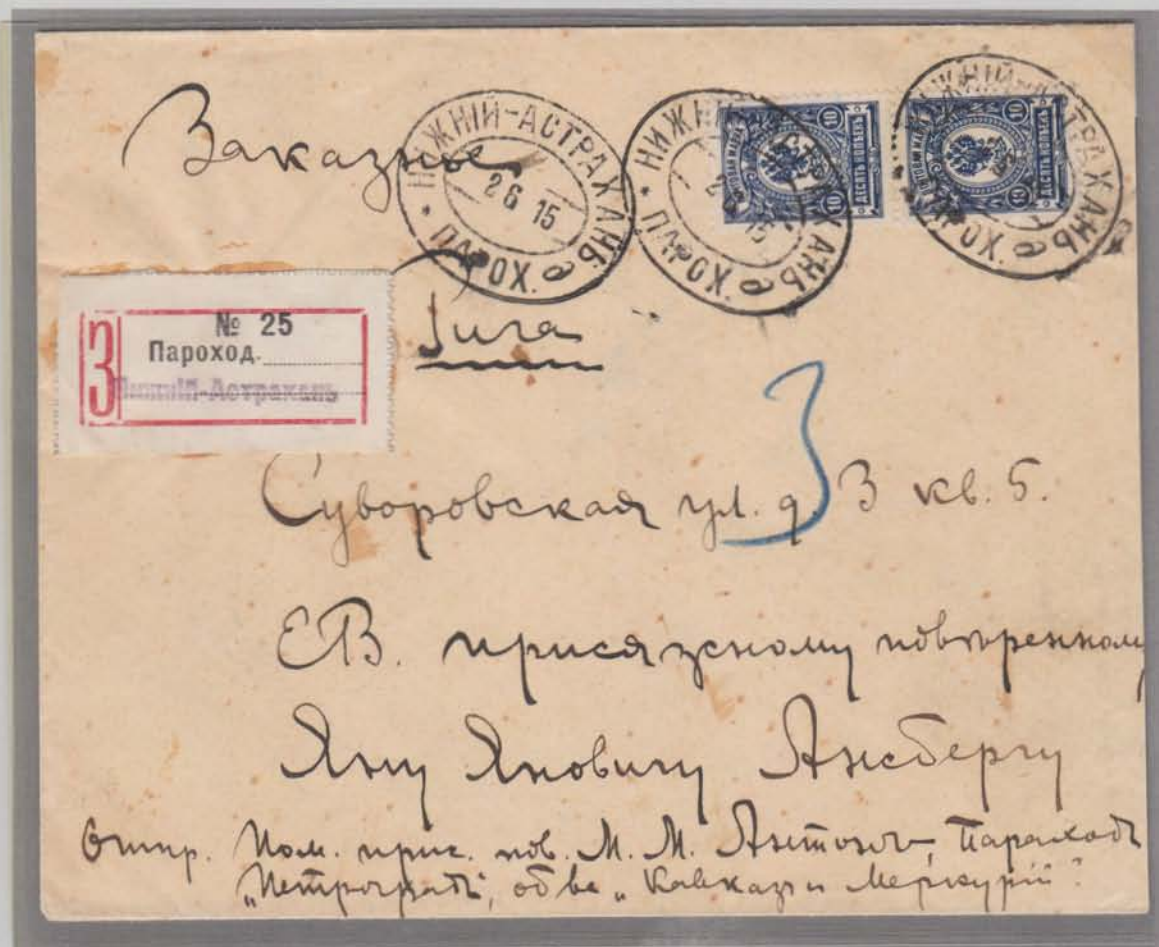 Заказное
НИЖНІЙ-АСТРАХАНЬ
26 15
* ПАРОХ. а
НИЖНІЙ-АСТРАХАНЬ
* ПАРОХ. а
НИЖНІЙ-АСТРАХАНЬ
ПАРОХ. а
10 ДЕСЯТЬ КОПѢЕКЪ 10
10 ДЕСЯТЬ КОПѢЕКЪ 10
№ 25
З Пароход.
Нижній-Астрахань
Рига
3
Суворовская ул. д. 3 кв. 5.
ЕВ. присяжному повѣренному
Яну Яновичу Ансбергу
Отпр. Пом. прис. пов. М. М. Антоновъ, Пароходъ
„Петроградъ", об-ве „Кавказъ и Меркурій".